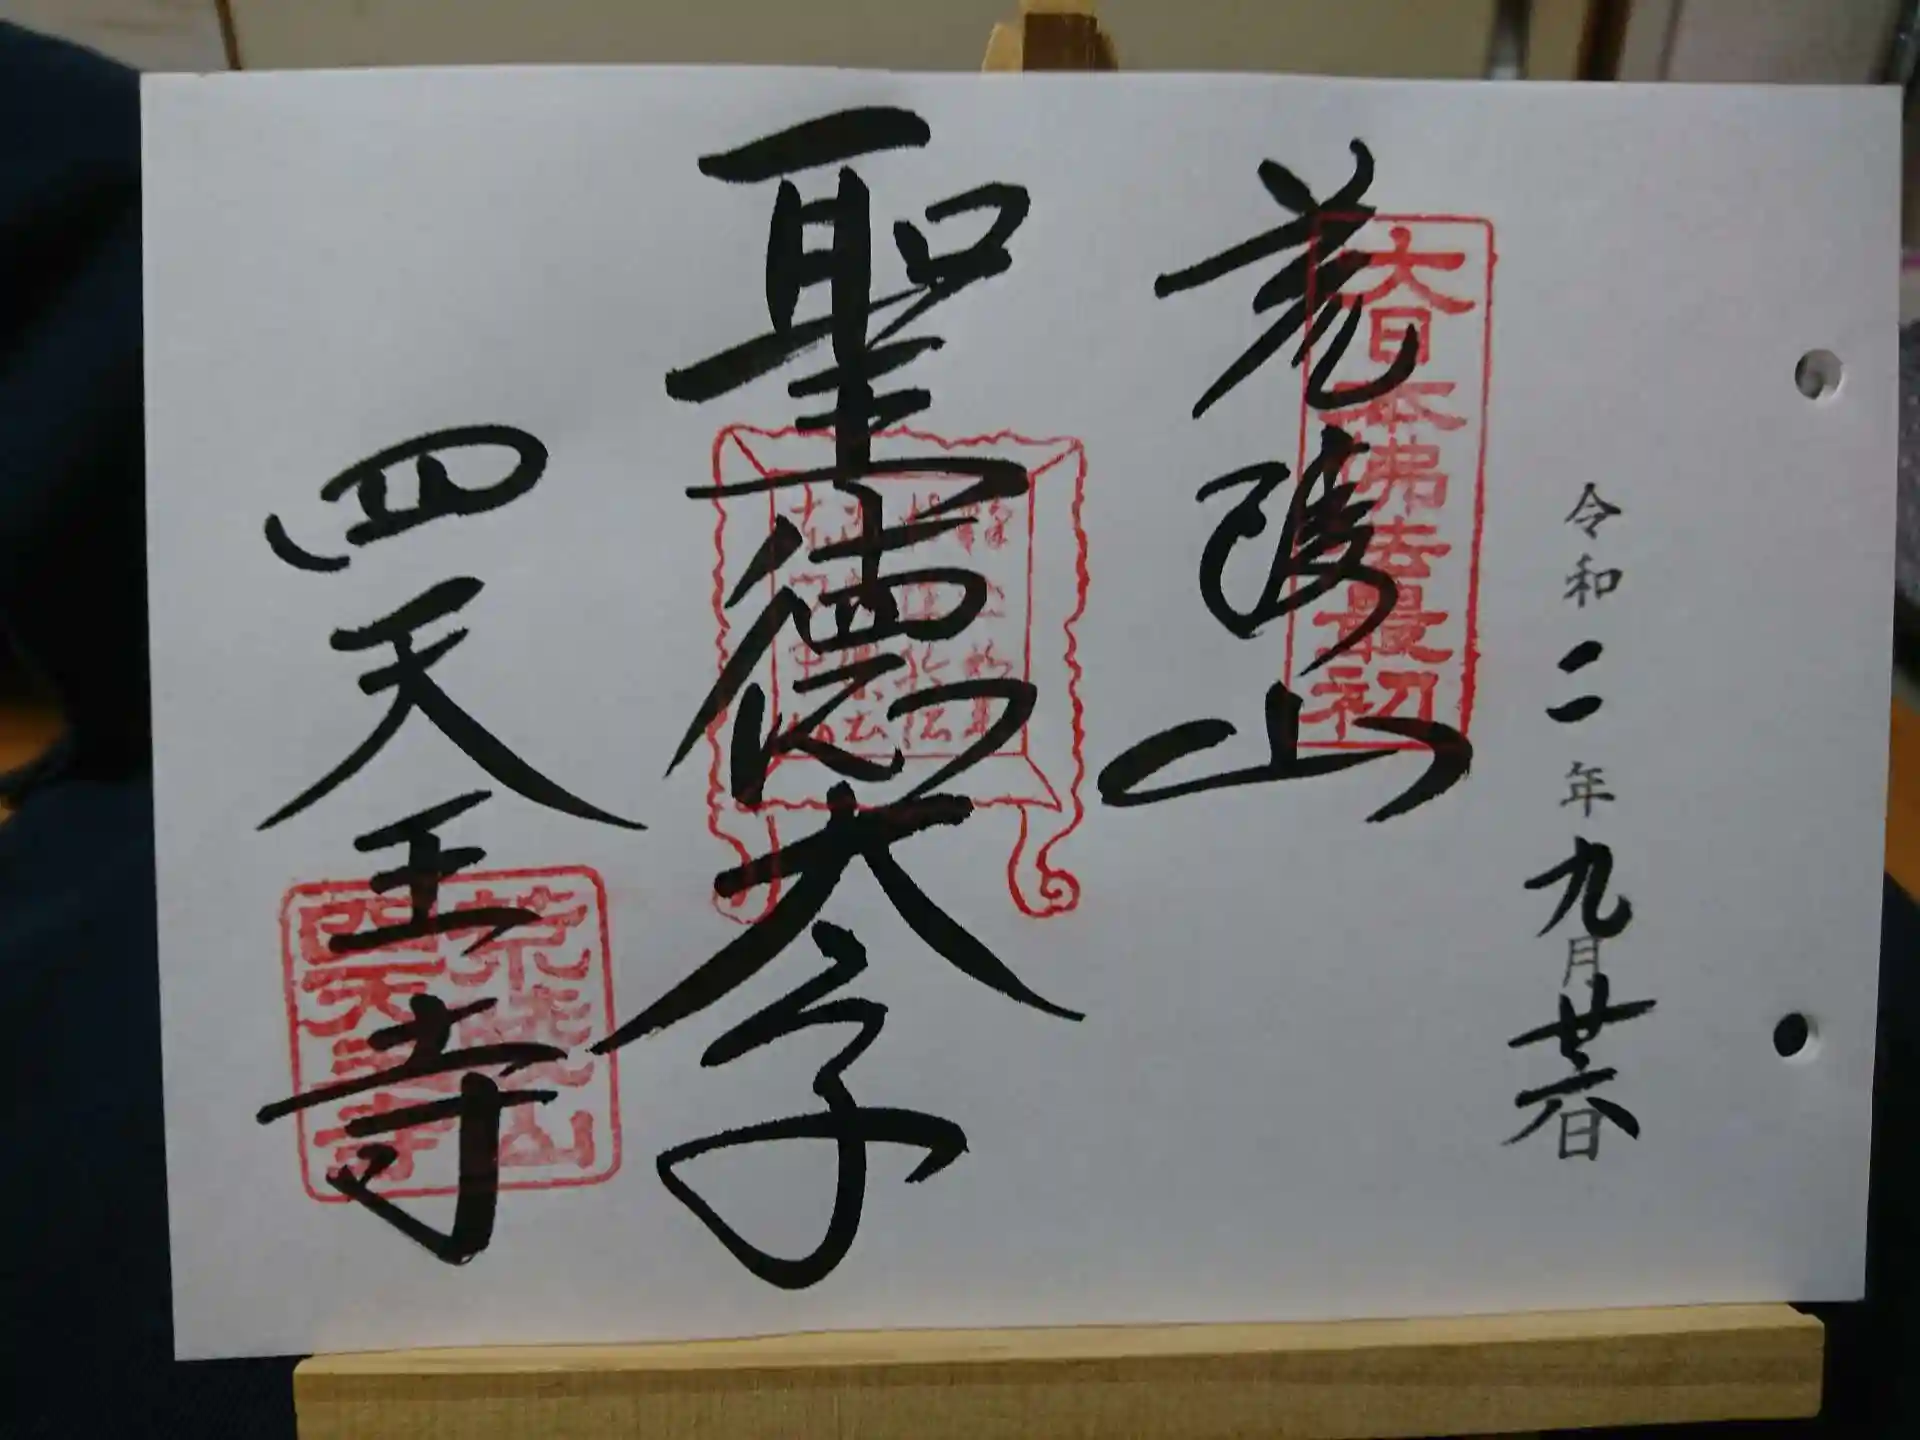 令和二年九月廿六日
荒陵山
大日本佛法最初
聖徳太子
四天王寺
荒陵山
四天王寺